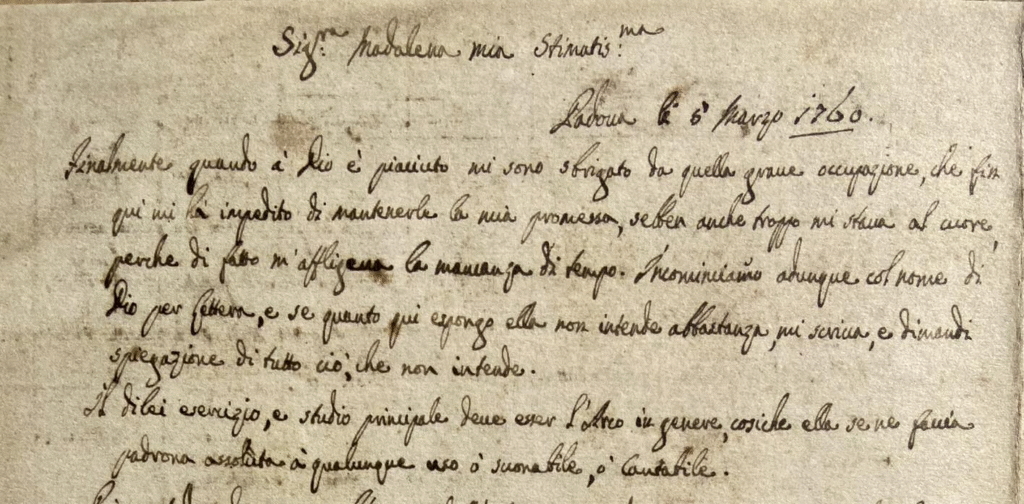 Sig:ra Madalena mia Stimatis:ma
Padova li 5 Marzo 1760.
Finalmente quando à Dio è piaciuto mi sono sbrigato da quella grave occupazione, che fin
quì mi hà impedito di mantenerle la mia promessa, sebben anche troppo mi stava al cuore,
perche di fatto m'affligeva la mancanza di tempo. Incominciamo adunque col nome di
Dio per lettera, e se quanto qui espongo ella non intende abbastanza, mi scriva, e dimandi
spegazione di tutto ciò, che non intende.
Il dilei esercizio, e studio principale deve esser l'Arco in genere, cosiche ella se ne faccia
padrona assoluta à qualunque uso ò suonabile, ò Cantabile.